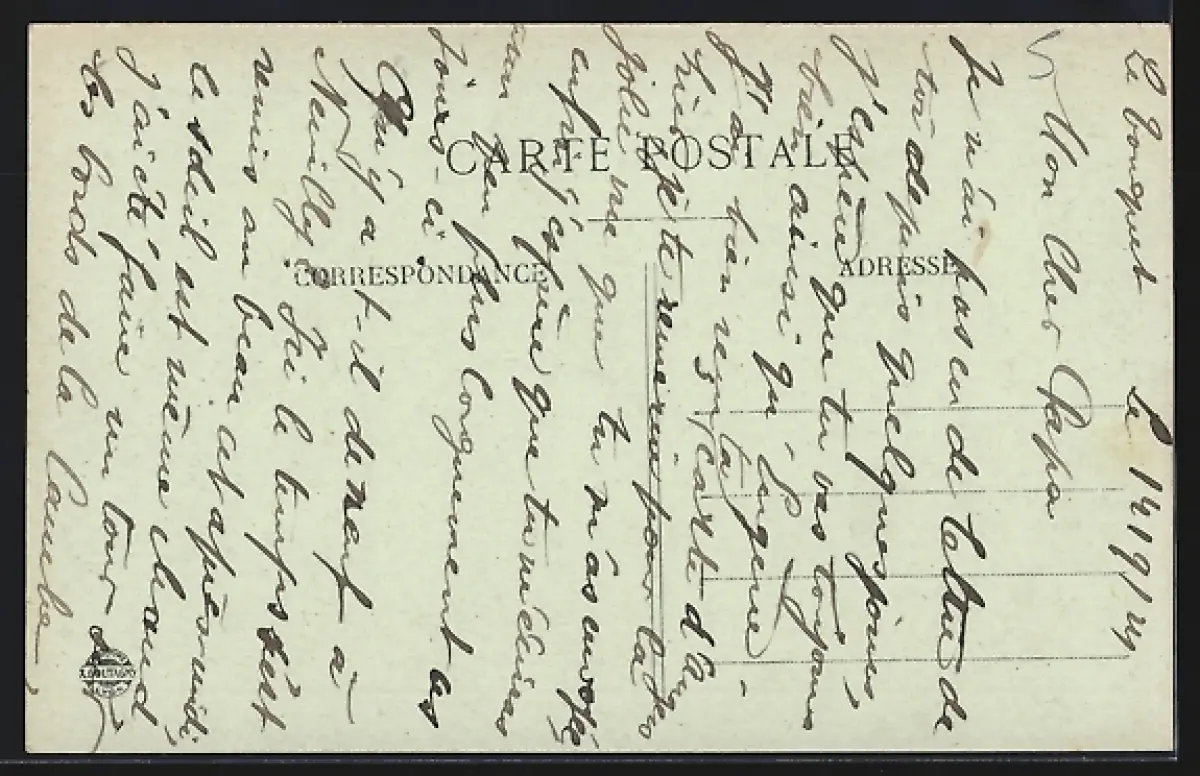 CARTE POSTALE
CORRESPONDANCE
ADRESSE
Le Le 14/9/14
Mon Cher Papa
Je n'ai pas eu de lettre de
toi depuis quelques jours
J'espère que tu vas toujours
bien ainsi qu'Eugene
J'ai bien reçu ta carte d'
hier je te remercie pour la
jolie vue que tu m'as envoyée
enfin j'espère que tu m'écriras
un peu plus longuement ces
jours-ci.
Qu'y a-t-il de neuf à
Neuilly? Ici le temps s'est
remis au beau cet après-midi
le soleil est même chaud
j'ai été faire un tour
les bords de la Canche